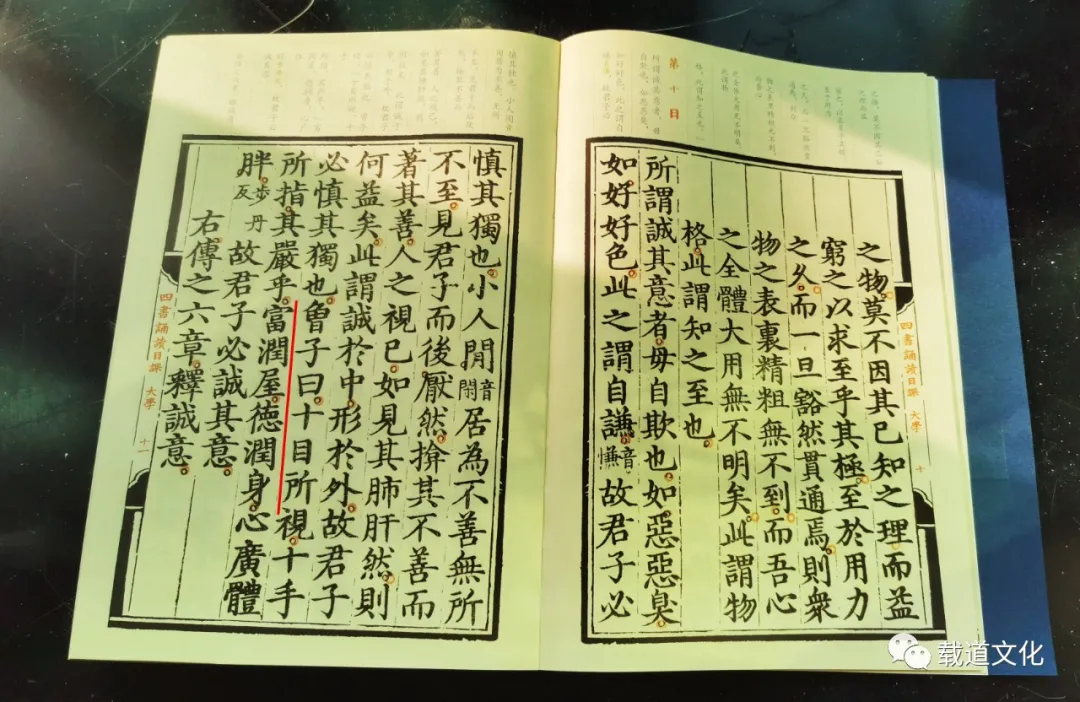 第十日
之物。莫不因其已知之理。而益
窮之。以求至乎其極。至於用力
之久。而一旦豁然貫通焉。則衆
物之表裏精粗無不到。而吾心
之全體大用無不明矣。此謂物
格。此謂知之至也。
所謂誠其意者。毋自欺也。如惡惡臭。
如好好色。此之謂自謙。音慊故君子必
四書誦讀日課 大學 十
慎其獨也。小人閒音閑居為不善。無所
不至。見君子而後厭然。揜其不善。而
著其善。人之視己。如見其肺肝然。則
何益矣。此謂誠於中。形於外。故君子
必慎其獨也。曾子曰。十目所視。十手
所指。其嚴乎。富潤屋。德潤身。心廣體
胖。步丹反故君子必誠其意。
右傳之六章。釋誠意。
四書誦讀日課 大學 十一
载道文化